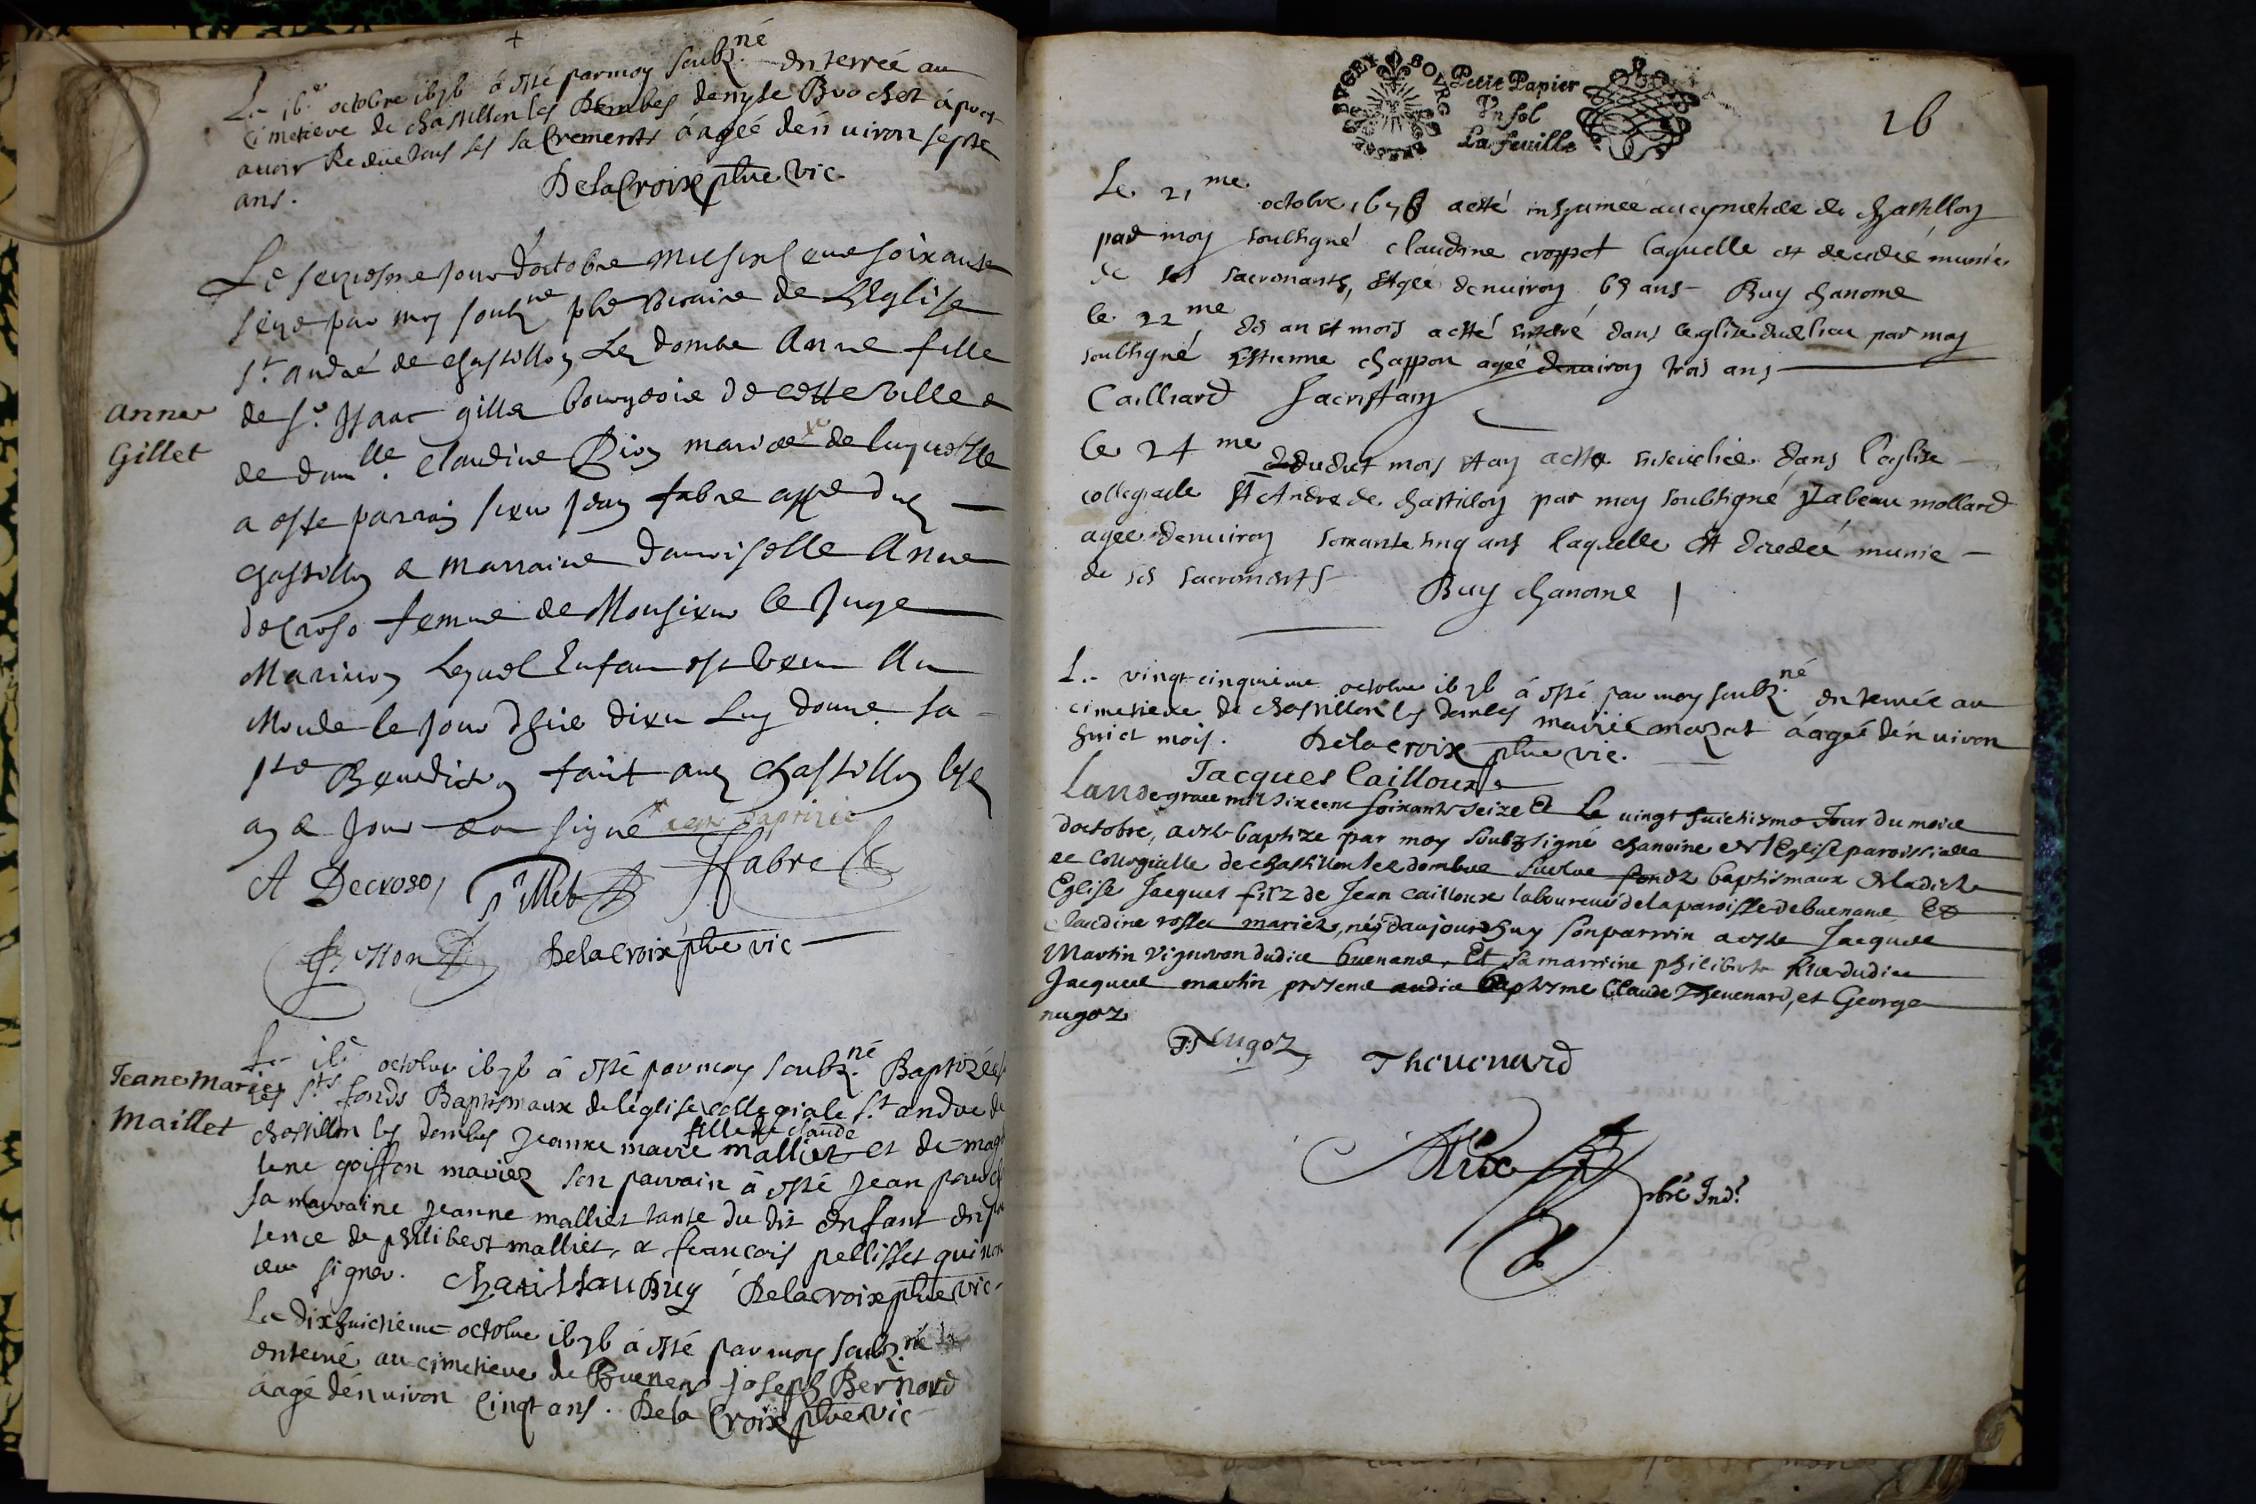 +
Le 16.e octobre 1676 à esté par moy soubz.né enterrée au
cimetiere de chastillon les Dembes denyse Brochet àpres
avoir Receüe tous ses sacrements áagéé dénuiron septe
ans. Delacroix pbre vic.
Le seziesme Jour doctobre mil six cent soixante
seize par moy soubz.ne pbre vicaire de LEglise
s.t André de chastillon Les dombe Anne fille
de s.r Isaac gillet bourgeois de cette ville &
de dam.lle Claudine Pion mariées de luquelle
a este parrain sieur Jean fabre
chastillon & marraine damoiselle Anne
decroso femme de Monsieur le Juge
Marinon Lequel Enfan est venu Au
Monde le Jour dhier dieu Luy donne sa
ste Benediction fait au chastillon lesd
an & Jour
Anne
Gillet
A Decroso Gillet Ffabre
Delacroix pbre vic
Jeane Marie
Maillet
Le 16.e octobre 1676 à esté par moy soubz.né Baptizée
les s.ts fonds Baptismaux de léglise collegiale s.t andre de
fille de claude
chastillon les dembes Jeanne marie malliet et de mag
lene goiffon mariez son parrain à esté Jean
sa marraine Jeanne malliet tante du dit enfant en
sence de philibert malliet, & francois pellisset qui non
sceu signer. Delacroix pbre vic.
Le dixhuictieme octobre 1676 à esté par moy soubz.né
enterré au cimetiere de Buenens Joseph Bernard
áagé dénuiron cinqt ans. Dela Croix pbre vic
BOVRG BVGEY
Petit Papier
In fol
La feuille
16
Le 21me octobre 1676 a esté inhumée au cymetiere de chastillon
par moy soubsigné claudine croppet laquelle est decedée munie
de ses sacremants, Agée denuiron 65 ans Buy chanoine
le 22me des an et mois a esté enterré dans leglize dud lieu par moy
soubsigné Estienne chappon agée denuiron trois ans
Cailliard sacristain
Le 24me dudict mois et an a esté enseuelie dans leglize
collegialle St Andre de chastillon par moy soubsigné Ysabeau mollard
agee denuiron soixante sinq ans laquelle est decedée munie
de ses sacremants Buy chanoine
Le vingt cinquieme octobre 1676 à esté par moy soubz.né enterrée au
cimetiere de chastillon les dembes mariie mazat áagéé dénuiron
huict mois. Delacroix pbre vic.
Jacques Cailloux
Lan de grace mil six cent soixante seize Et Le uingt huictiesme Jour du mois
doctobre, a este baptize par moy soubzsigné chanoine en lEglise paroissialle
et Collegialle de chastillon les dombes sur les fondz baptismaux de ladicte
Eglise Jacques filz de Jean cailloux laboureur de la paroisse de buenane Et
Claudine rosset mariés, néz daujourdhuy son parrin a este Jacques
Martin Vigneron dudict buenane, Et sa marrine philiberte fille dudict
Jacques martin present audict Baptesme Claude Theuenard, et George
nugoz
Nugoz Theuenard
Alix pbre Ind.e